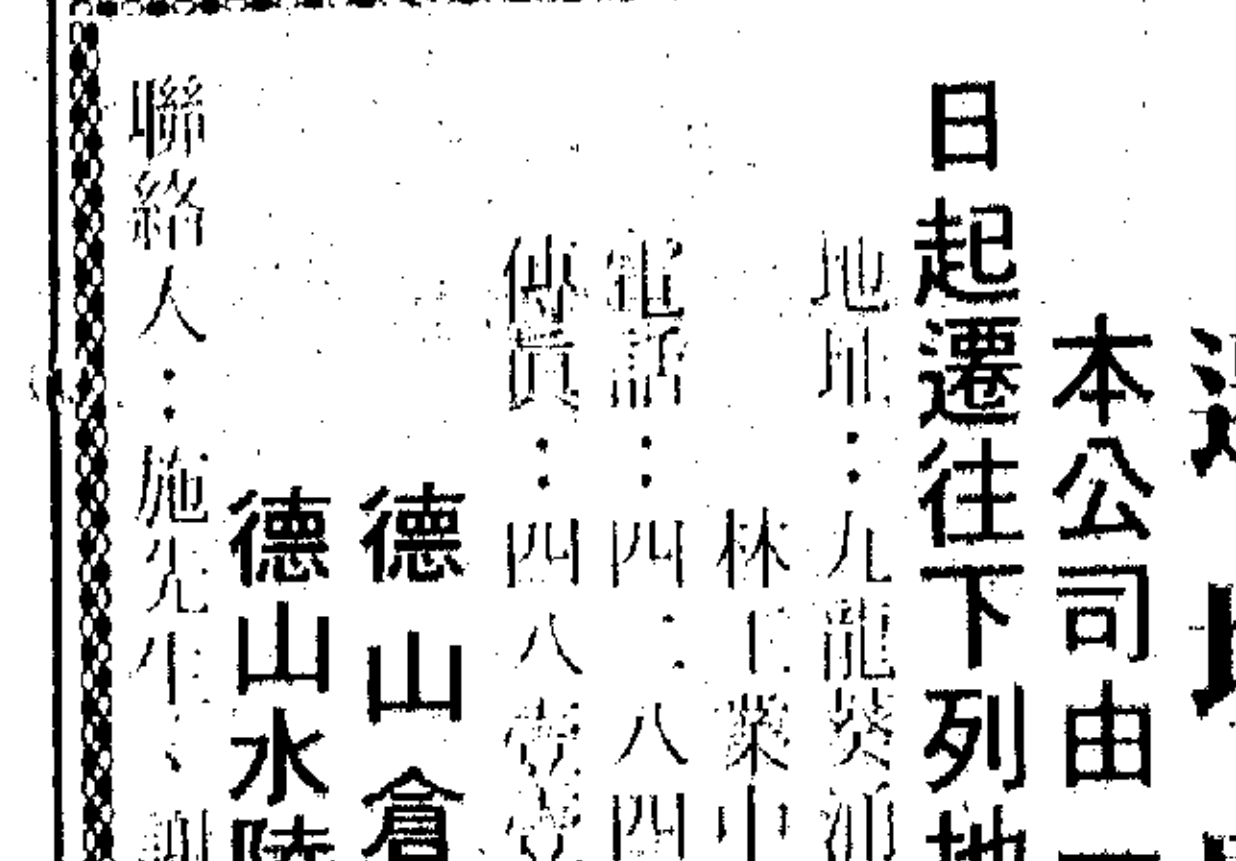 本公司由
日起遷往下列地
地址：九龍葵涌
林工業中
電話：四二八四
傳真：四八
德山倉
德山水陸
聯絡人：施先生、